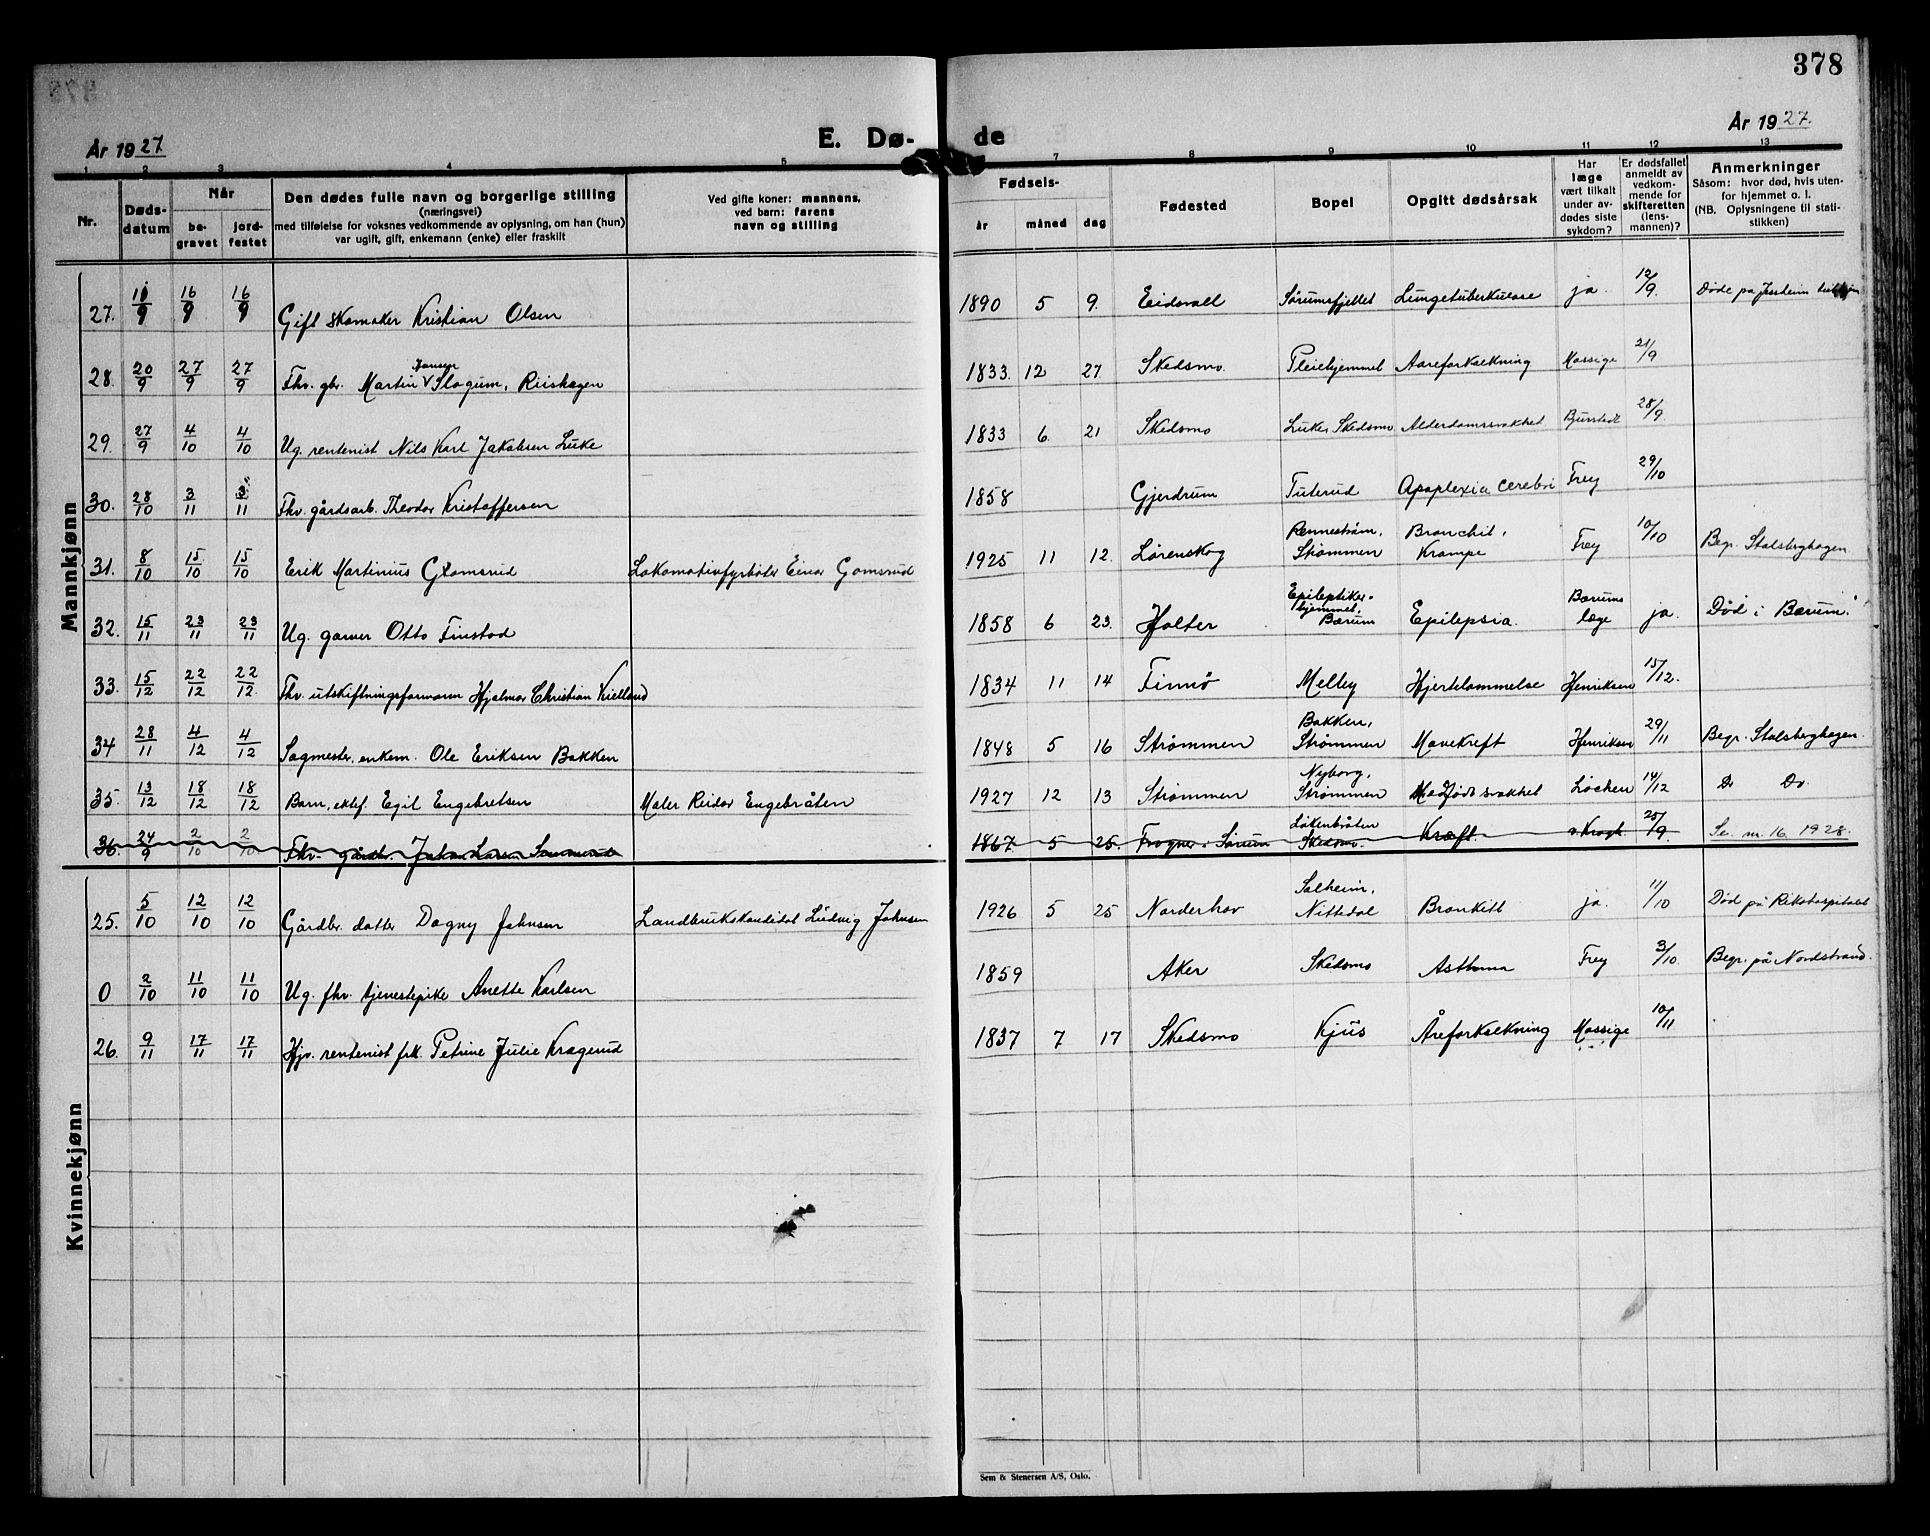 378
År 1927
E. Dø- de
År 1927.
1 2 3 4 5 7 8 9 10 11 12 13
Nr.
Døds-
datum
Når
be-
gravet
jord-
festet
Den dødes fulle navn og borgerlige stilling
(næringsvei)
med tilføielse for voksnes vedkommende av oplysning, om han (hun)
var ugift, gift, enkemann (enke) eller fraskilt
Ved gifte koner: mannens,
ved barn: farens
navn og stilling
Fødsels-
år måned dag
Fødested
Bopel
Opgitt dødsårsak
Har
læge
vært tilkalt
under av-
dødes siste
sykdom?
Er dødsfallet
anmeldt av
vedkom-
mende for
skifteretten
(lens-
mannen)?
Anmerkninger
Såsom: hvor død, hvis uten-
for hjemmet o. l.
(NB. Oplysningene til stati-
stikken)
Mankjønn
27. 16/9 16/9 Gift skomaker Kristian Olsen 1890 5 9. Eidsvall Sørumsfjellet Lungetuberkulose ja. 12/9. Døde på Jessheim
28. 20/9 27/9 27/9 Fhv. gbr. Martin Jansen Slogum, Riishagen 1833. 12 27 Skedsmo. Pleiehjemmet Aareforkalkning Massige 21/9
29. 27/9 4/10 4/10 Ug. rentenist Nils Karl Jakobsen Luke 1833 6. 21 Skedsmo Luke, Skedsmo Alderdomssvakhet 28/9.
30. 28/10 3/11 3/11 Fhv. gårdsarb. Theodor Kristoffersen 1858 Gjerdrum Tuterud Apoplexia cerebri Frey 29/10
31. 8/10 15/10 15/10 Erik Martinius Glomsrud Lokomotivfyrbøter Einar Gomsrud 1925 11 12. Lørenskog Strømmen Bronchit, Krampe Frey 10/10 Begr. Stalsberghagen
32. 15/11 23/11 23/11 Ug. garver Otto Finstad 1858 6 23. Holter Epileptiker-hjemmet, Bærum Epilepsia. Bærums læge ja. Død i Bærum.
33. 15/12 22/12 22/12 Fhv. utskiftningsformann Hjalmar Christian Kielland 1834 11 14 Finnø Melby Hjertelammelse Henriksen 15/12.
34 28/11 4/12 4/12 Sagmester, enkem. Ole Eriksen Bakken 1848 5 16 Strømmen Bakken, Strømmen Mavekreft Henriksen 29/11 Begr. Stalsberghagen.
35. 13/12 18/12 18/12 Barn, ektef. Egil Engebretsen Maler Reidar Engebråten 1927 12 13 Strømmen Nyborg, Strømmen Medfødt svakhet Løchen 14/12 Do Do.
36. 24/9 2/10 2/10 Fhv. gårdbr. Johan Larsen 1867 5 25. Frogner i Sørum Løkenbråten Skedsmo. Kræft. v. Krogh. 25/9 Se nr. 16 1928.
Kvinnekjønn
25. 5/10 12/10 12/10 Gårdbr. datter Dagny Johnsen Landbrukskandidat Ludvig Johnsen 1926 5 25 Norderhov Solheim, Nittedal Bronkitt ja. 11/10 Død på Rikshospitalet
0 2/10 11/10 11/10 Ug. fhv. tjenestepike Anette Karlsen 1859 Aker Skedsmo Asthma Frey 3/10. Begr. på Nordstrand.
26. 9/11 17/11 17/11 Hjv. rentenist frk. Petrine Julie Kragerud 1837 7 17 Skedsmo Kjus Åreforkalkning Massige 10/11
Sem & Stenersen A/S, Oslo.